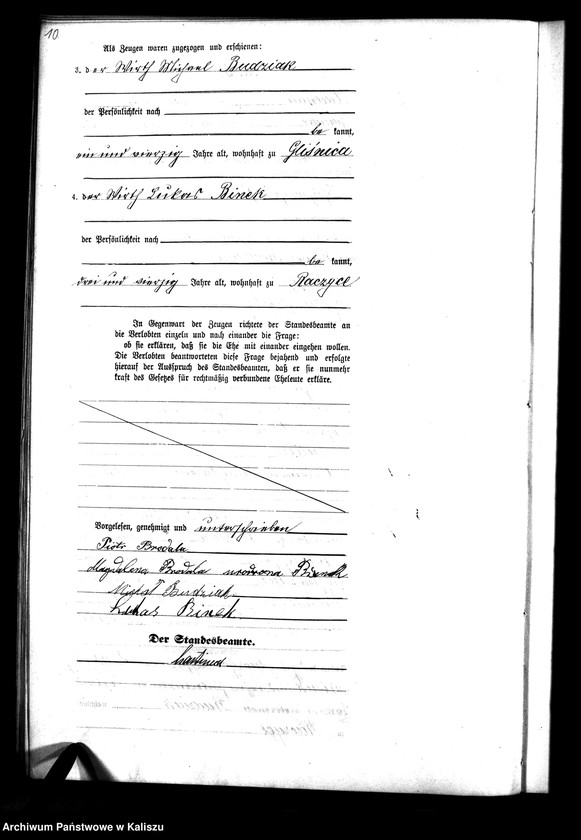 10
Als Zeugen waren zugezogen und erschienen:
3. der Wirth Michael Budziak
der Persönlichkeit nach
be kannt,
ein und vierzig Jahre alt, wohnhaft zu Gliśnica
4. der Wirth Lukas Binek
der Persönlichkeit nach
be kannt,
drei und vierzig Jahre alt, wohnhaft zu Raczyce
In Gegenwart der Zeugen richtete der Standesbeamte an
die Verlobten einzeln und nach einander die Frage:
ob sie erklären, daß sie die Ehe mit einander eingehen wollen.
Die Verlobten beantworteten diese Frage bejahend und erfolgte
hierauf der Ausspruch des Standesbeamten, daß er sie nunmehr
kraft des Gesetzes für rechtmäßig verbundene Eheleute erkläre.
Vorgelesen, genehmigt und unterschrieben
Piotr Brodala
Magdalena Brodala urodzona Binek
Michał Budziak
Lukas Binek
Der Standesbeamte.
Archiwum Państwowe w Kaliszu